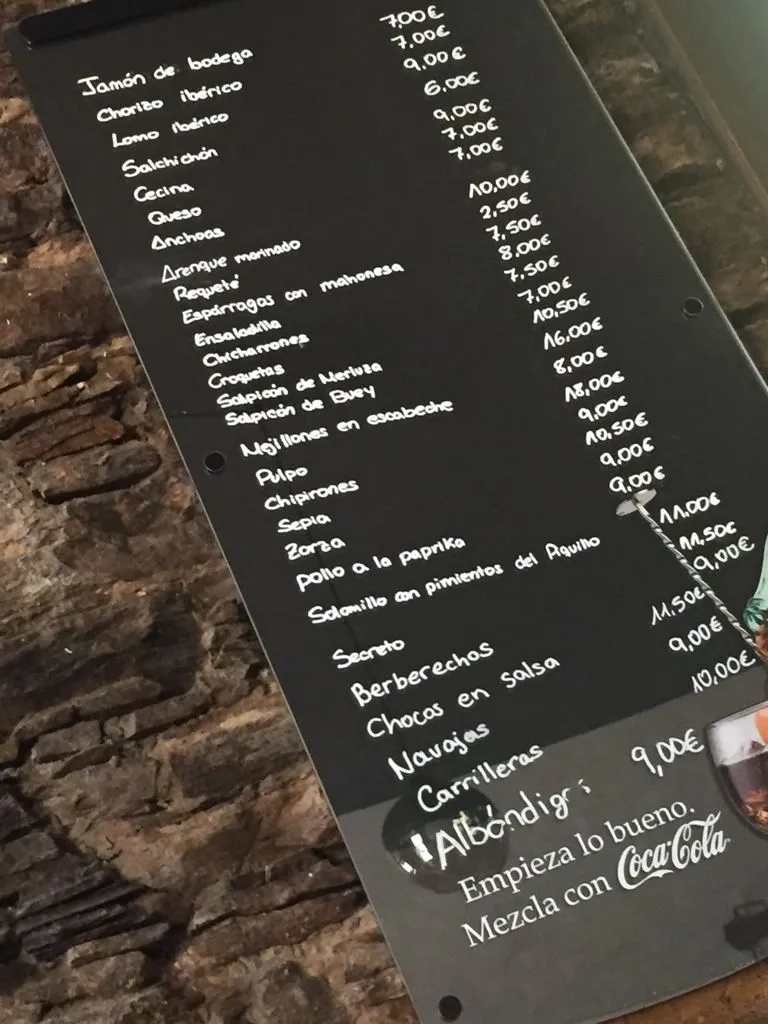 Jamón de bodega 7,00€
Chorizo ibérico 7,00€
Lomo Ibérico 9,00€
Salchichón 6,00€
Cecina 9,00€
Queso 7,00€
Anchoas 7,00€
Arenque marinado 10,00€
Requeté 2,50€
Espárragos con mahonesa 7,50€
Ensaladilla 8,00€
Chicharrones 7,50€
Croquetas 7,00€
Salpicón de Merluza 10,50€
Salpicón de Buey 16,00€
Mejillones en escabeche 8,00€
Pulpo 18,00€
Chipirones 9,00€
Sepia 10,50€
Zorza 9,00€
pollo a la paprika 9,00€
Solomillo con pimientos del Piquillo 11,00€
Secreto 11,50€
Berberechos 9,00€
Chocos en salsa 11,50€
Navajas 9,00€
Carrilleras 10,00€
9,00€
Empieza lo bueno.
Mezcla con Coca-Cola